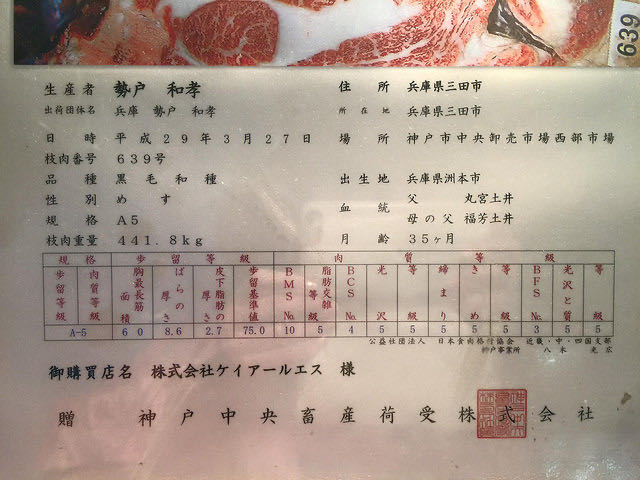 639
生産者 勢戸 和孝 住所 兵庫県三田市
出荷団体名 兵庫 勢戸 和孝 所在地 兵庫県三田市
日時 平成29年3月27日 場所 神戸市中央卸売市場西部市場
枝肉番号 639号
品種 黒毛和種 出生地 兵庫県洲本市
性別 めす 血統 父 丸宮土井
規格 A5 母の父 福芳土井
枝肉重量 441.8kg 月齢 35ヶ月
規格 歩留等級 肉質等級
歩留等級 肉質等級 胸最長筋面積 ばらの厚さ 皮下脂肪の厚さ 歩留基準値 BMS No. 脂肪交雑等級 BCS No. 光沢 等級 締まり きめ 等級 BFS No. 光沢と質 等級
A-5 60 8.6 2.7 75.0 10 5 4 5 5 5 5 5 3 5 5
公益社団法人 日本食肉格付協会 近畿・中・四国支部
神戸事業所 八木 光広
御購買店名 株式会社ケイアールエス 様
贈 神戸中央畜産荷受株式会社